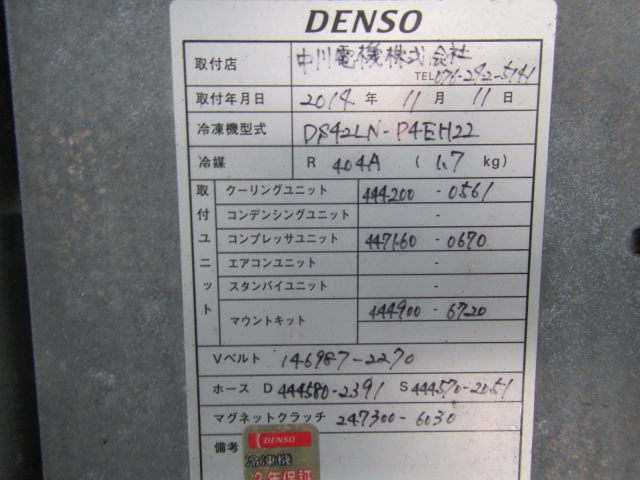 DENSO
取付店 中川電機株式会社
TEL 076-292-5141
取付年月日 2014 年 11 月 11 日
冷凍機型式 DS42LN-P4EH22
冷媒 R 404A ( 1.7 kg)
取付ユニット
クーリングユニット 444200 - 0561
コンデンシングユニット -
コンプレッサユニット 447160 - 0670
エアコンユニット -
スタンバイユニット -
マウントキット 444900 - 6720
Vベルト 146987-2270
ホース D 444580-2391 S 444570-2051
マグネットクラッチ 247300-6030
備考
DENSO
冷凍機
2年保証